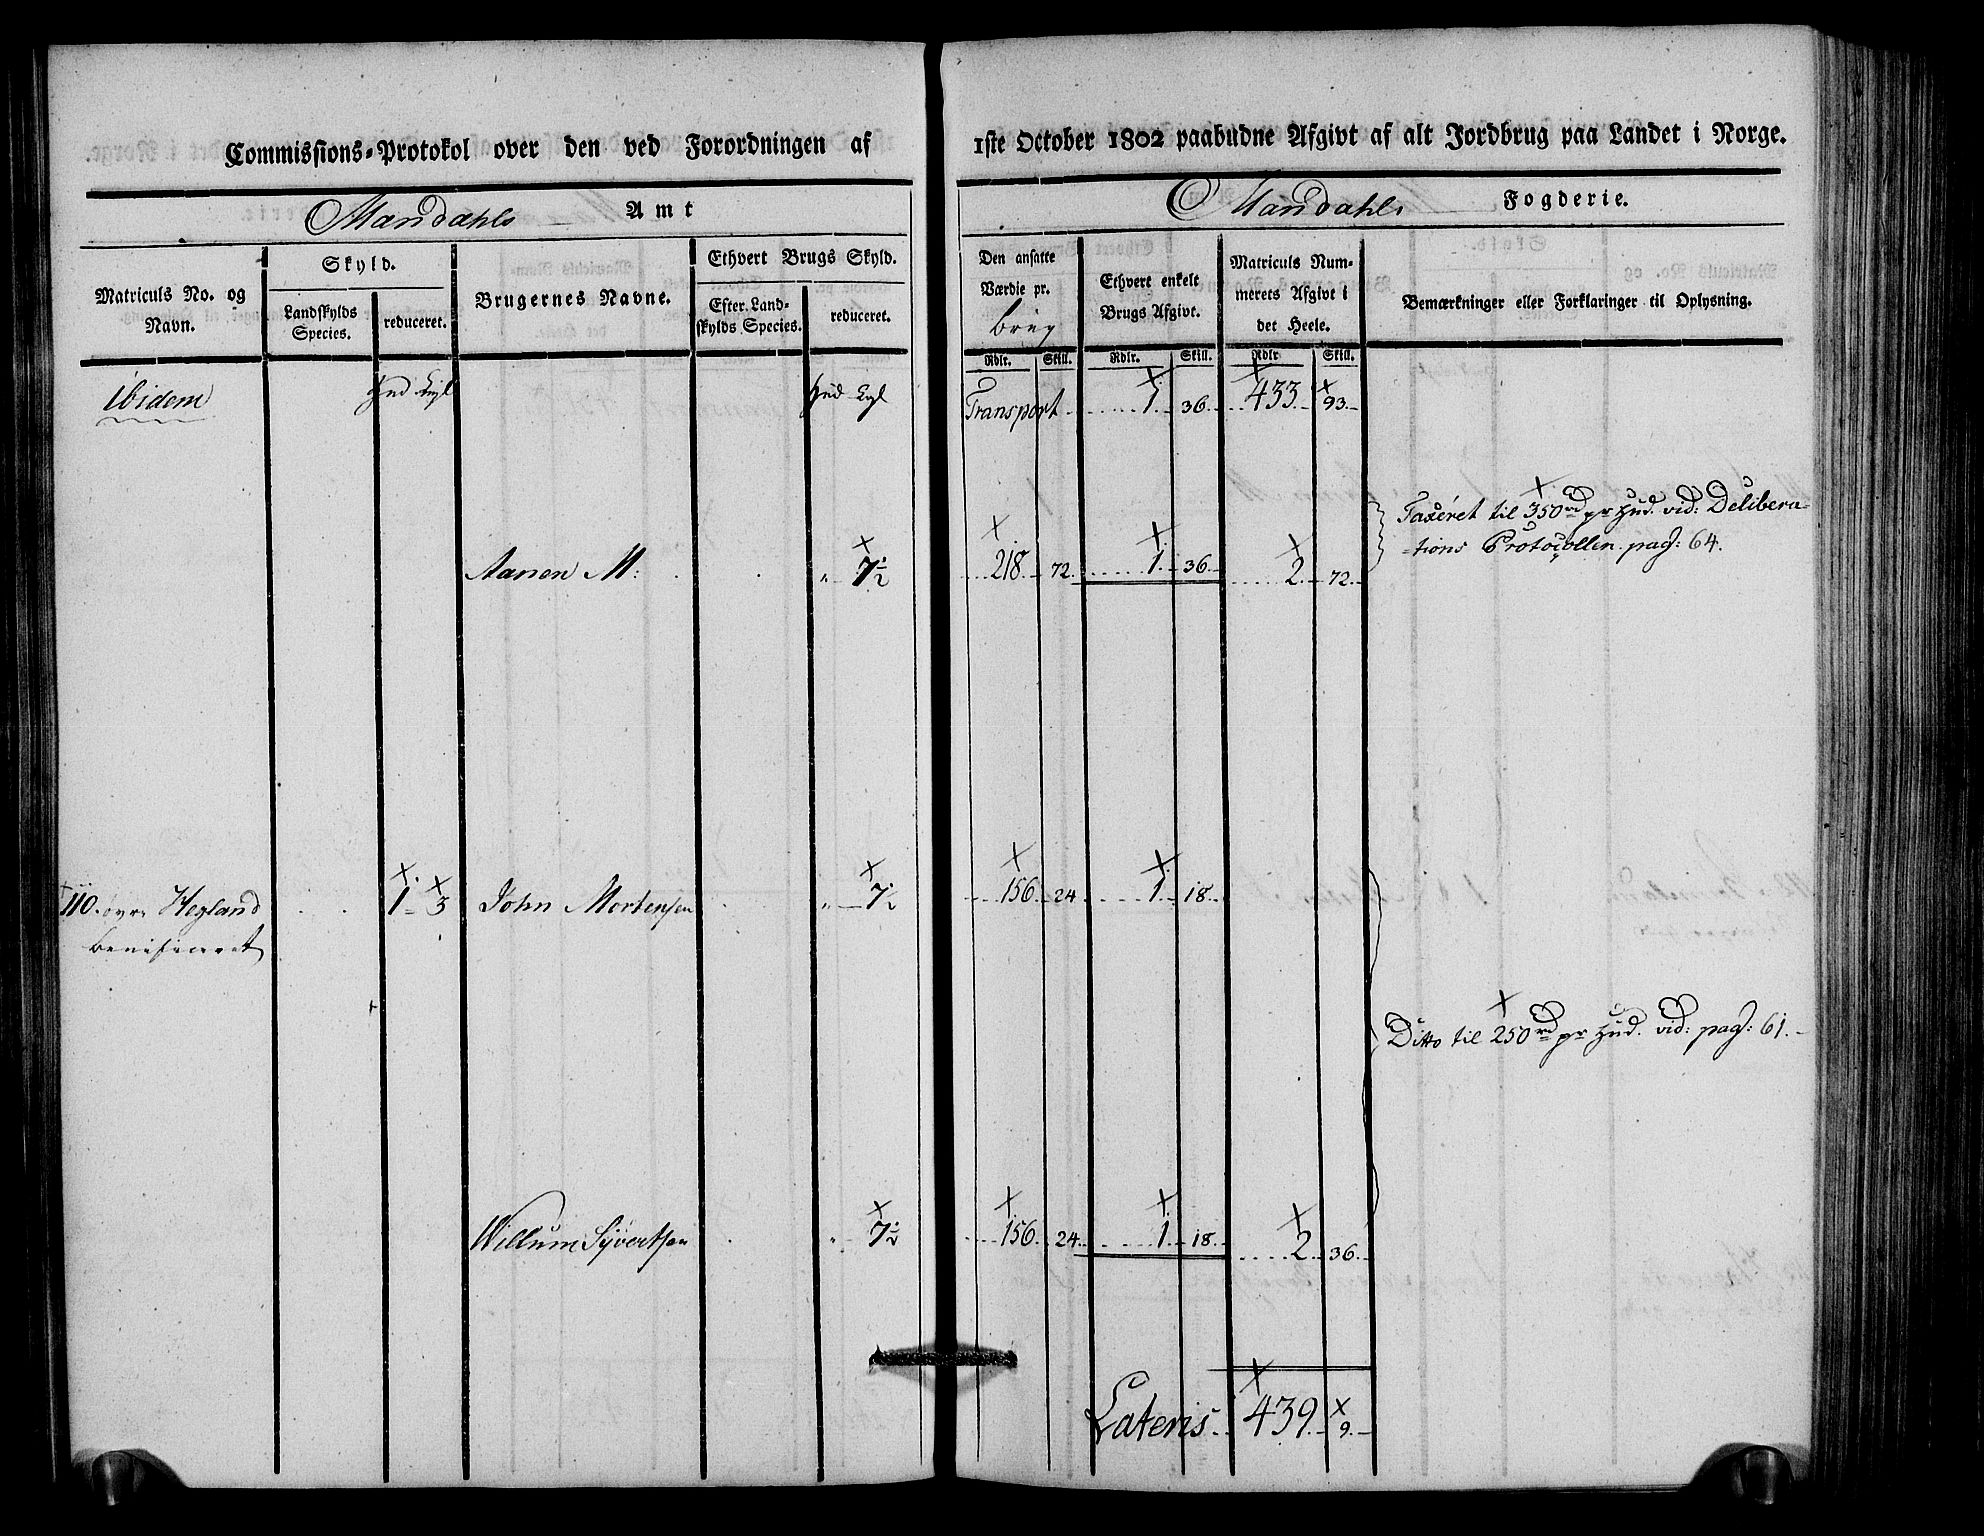 Commissions-Protokol over den ved Forordningen af 1ste October 1802 paabudne Afgivt af alt Jordbrug paa Landet i Norge.
Mandahls Amt
Mandahls Fogderie.
Matriculs No. og Navn.
Skyld.
Landskylds Species.
reduceret.
Brugernes Navne.
Ethvert Brugs Skyld.
Efter Landskylds Species.
reduceret.
Den ansatte Værdie pr. Brug
Ethvert enkelt Brugs Afgivt.
Matriculs Nummerets Afgivt i det Heele.
Bemærkninger eller Forklaringer til Oplysning.
Rdlr. Skill. Rdlr. Skill. Rdlr Skill.
Ibidem Hud Engl Hud Egl Transport 1. 36. 433. 93.
Taxéret til 350 rd pr Hud. vid: Delibera-
-tions Protocollen. pag: 64.
Aanen M: " 7½ 218. 72. 1. 36. 2. 72.
110. øvre Hegland 1 - 3 John Mortensen " 7½ 156. 24. 1. 18.
Benificeret
Ditto til 250 rd pr Hud. vid: pag: 61.
Willum Syvertsen " 7½ 156. 24. 1. 18. 2. 36.
Lateris 439. 9.